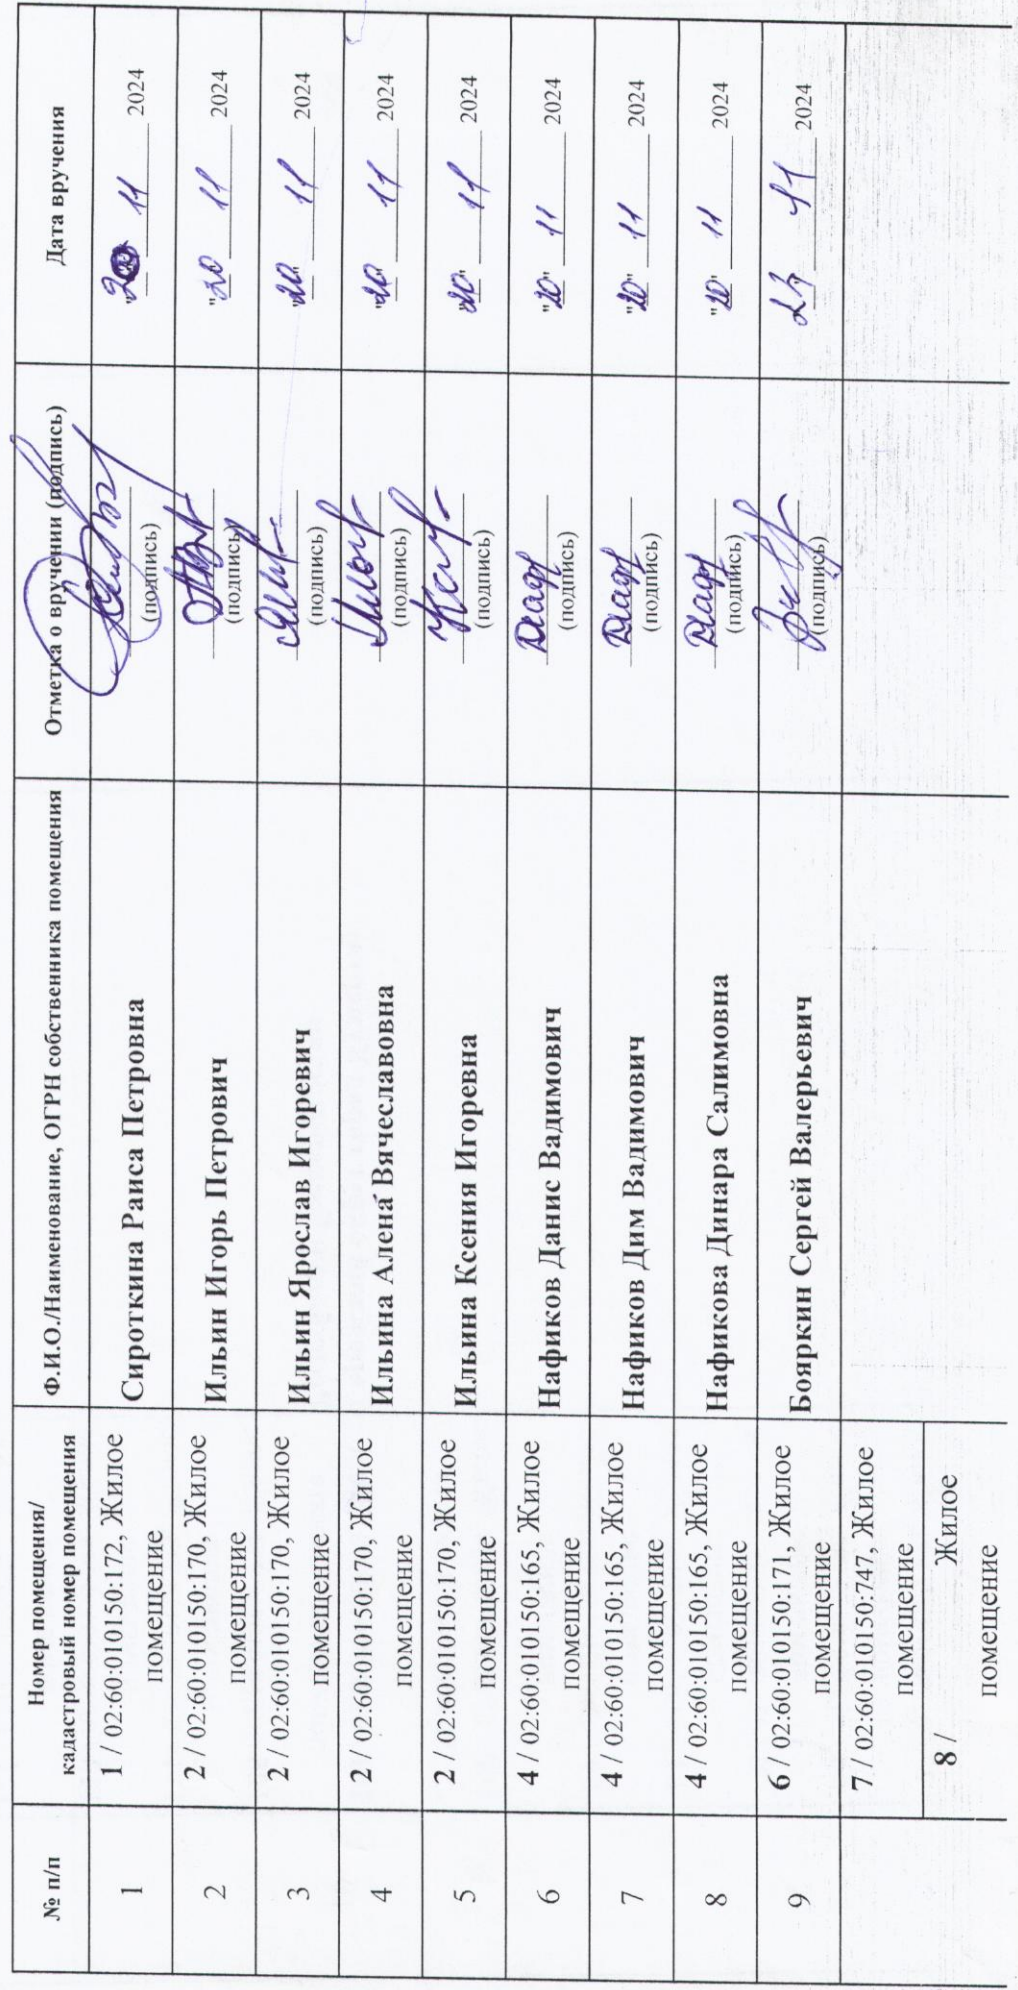 № п/п
Номер помещения/
кадастровый номер помещения
Ф.И.О./Наименование, ОГРН собственника помещения
Отметка о вручении (подпись)
Дата вручения
1
1 / 02:60:010150:172, Жилое
помещение
Сироткина Раиса Петровна
(подпись)
"20" 11 2024
2
2 / 02:60:010150:170, Жилое
помещение
Ильин Игорь Петрович
(подпись)
"20 11 2024
3
2 / 02:60:010150:170, Жилое
помещение
Ильин Ярослав Игоревич
(подпись)
"20" 11 2024
4
2 / 02:60:010150:170, Жилое
помещение
Ильина Алена Вячеславовна
(подпись)
"20" 11 2024
5
2 / 02:60:010150:170, Жилое
помещение
Ильина Ксения Игоревна
(подпись)
"20" 11 2024
6
4 / 02:60:010150:165, Жилое
помещение
Нафиков Данис Вадимович
(подпись)
"20" 11 2024
7
4 / 02:60:010150:165, Жилое
помещение
Нафиков Дим Вадимович
(подпись)
"20" 11 2024
8
4 / 02:60:010150:165, Жилое
помещение
Нафикова Динара Салимовна
(подпись)
"20" 11 2024
9
6 / 02:60:010150:171, Жилое
помещение
Бояркин Сергей Валерьевич
(подпись)
11 2024
7 / 02:60:010150:747, Жилое
помещение
8 / Жилое
помещение